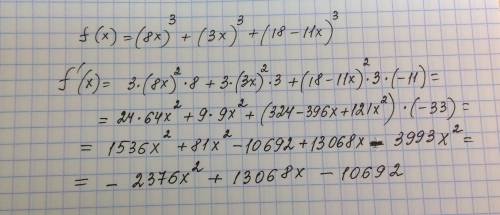 f(x) = (8x)³ + (3x)³ + (18 - 11x)³
f'(x) = 3·(8x)²·8 + 3·(3x)²·3 + (18 - 11x)²·3·(-11) =
= 24·64x² + 9·9x² + (324 - 396x + 121x²)·(-33) =
= 1536x² + 81x² - 10692 + 13068x - 3993x² =
= - 2376x² + 13068x - 10692